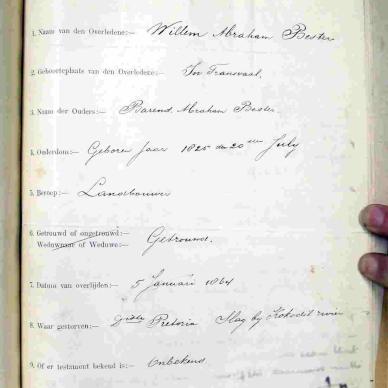 1. Naam van den Overledene:— Willem Abraham Bester
2. Geboorteplaats van den Overledene:— In Transvaal.
3. Naam der Ouders:— Barend Abraham Bester
4. Ouderdom:— Geboren Jaar 1825 den 20ste July
5. Beroep:— Landbouwer
6. Getrouwd of ongetrouwd:—
Weduwnaar of Weduwe:— Getrouwd.
7. Datum van overlijden:— 5 Januari 1864
8. Waar gestorven:— Pretoria Slag by Krokodil rivier
9. Of er testament bekend is:— Onbekend.